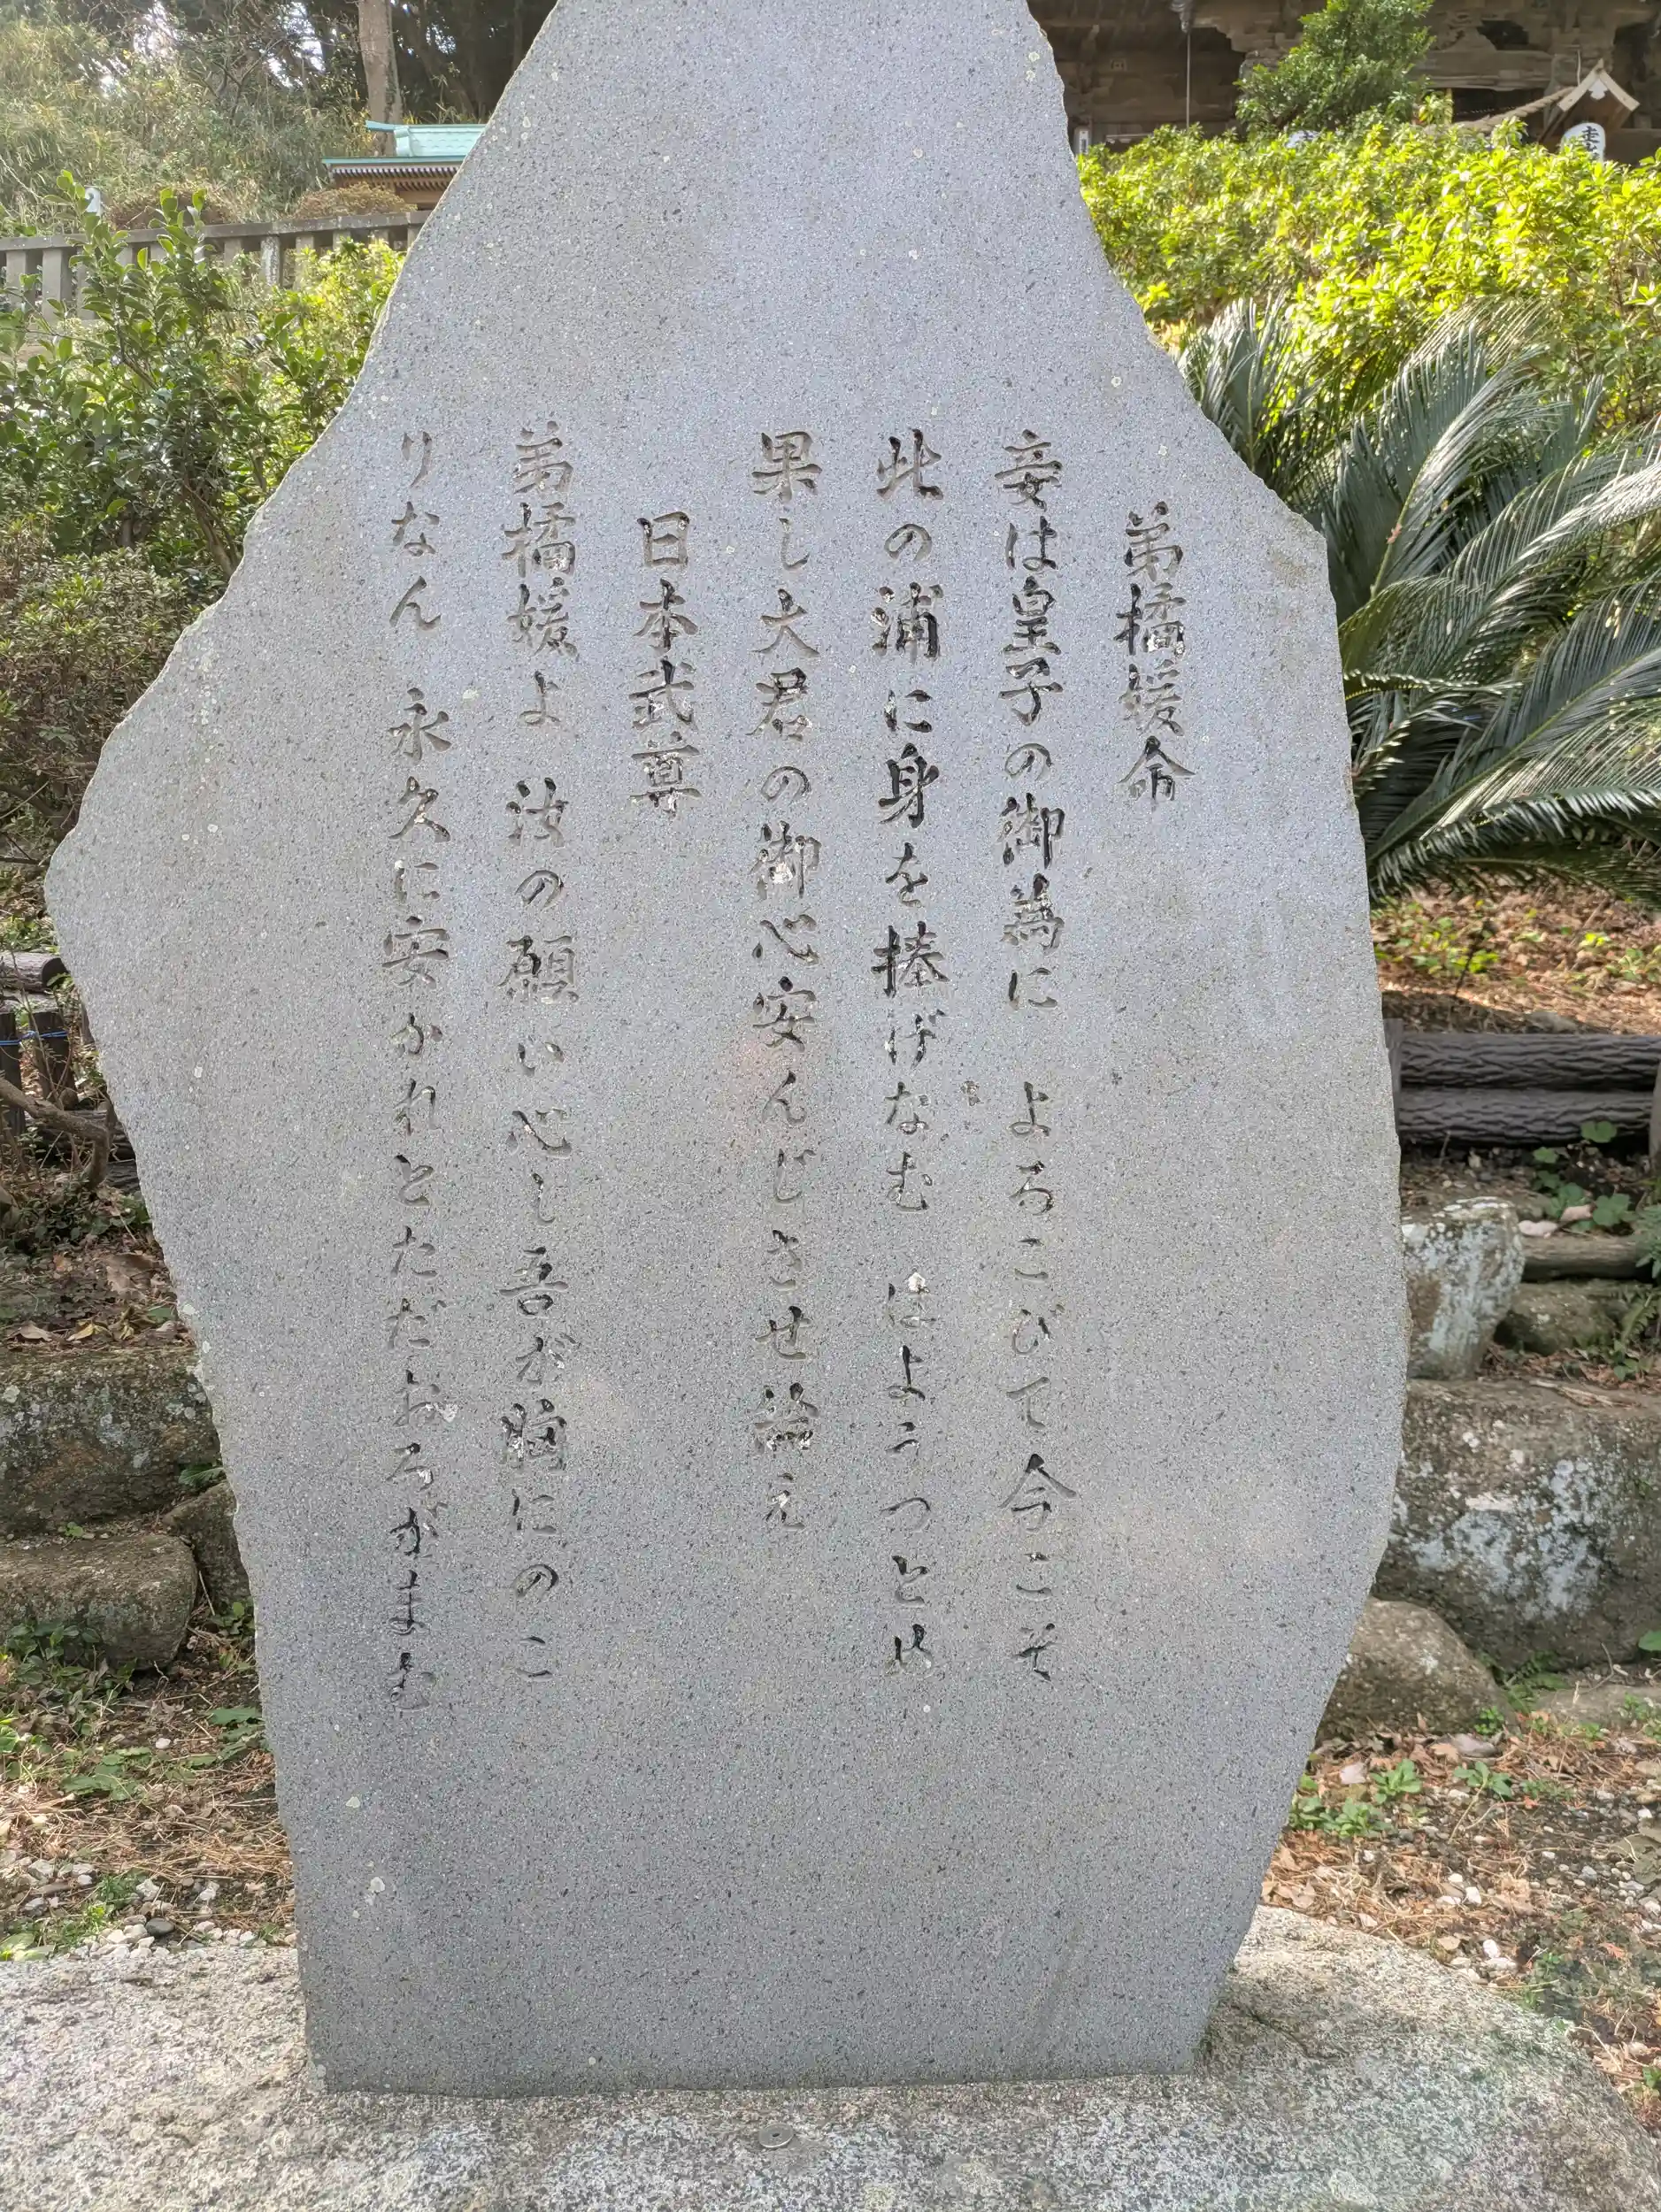 弟橘媛命
妾は皇子の御為に よろこびて今こそ
此の浦に身を捧げなむ はようつとめ
果し大君の御心安んじさせ給え
日本武尊
弟橘媛よ 汝の願い心し吾が胸にのこ
りなん 永久に安かれとただおろがまむ
走